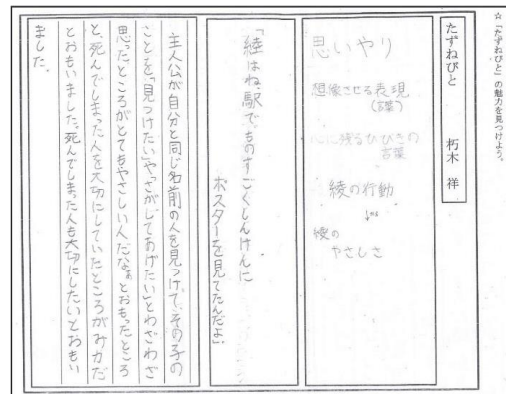 ☆「たずねびと」の魅力を見つけよう。
たずねびと　朽木 祥
思いやり
想像させる表現
(言葉)
心に残るひびきの
言葉
綾の行動
↓
綾の
やさしさ
「綾はね、駅でものすごくしんけんに
ポスターを見てたんだよ。
主人公が自分と同じ名前の人を見つけて、その子の
ことを「見つけたい」や「さがしてあげたい」とわざわざ
思ったところがとてもやさしい人だなぁとおもったところ
と、死んでしまった人を大切にしていたところがみ力だ
とおもいました。死んでしまった人も大切にしたいとおもい
ました。